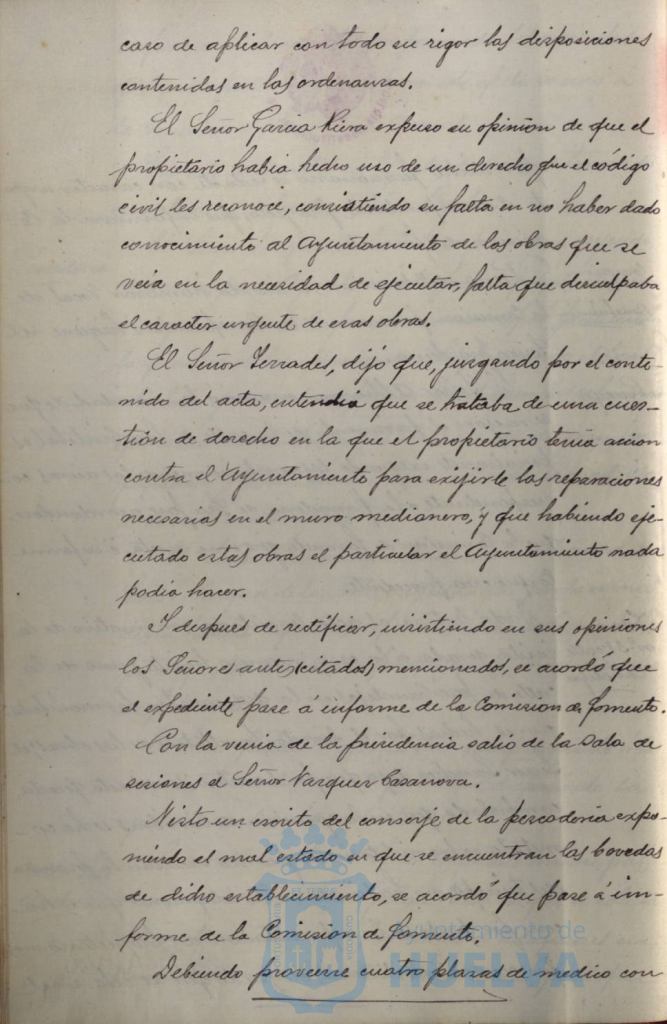 caso de aplicar con todo su rigor las disposiciones
contenidas en las ordenanzas.
El Señor Garcia Riera expuso su opinion de que el
propietario habia hecho uso de un derecho que el código
civil les reconoce, consistiendo su falta en no haber dado
conocimiento al Ayuntamiento de las obras que se
veia en la necesidad de ejecutar, falta que disculpaba
el caracter urgente de esas obras.
El Señor Terrades, dijo que, juzgando por el conte-
nido del acta, entendia que se trataba de una cues-
tión de derecho en la que el propietario tenia accion
contra el Ayuntamiento para exijirle las reparaciones
necesarias en el muro medianero, y que habiendo eje-
cutado estas obras el particular el Ayuntamiento nada
podia hacer.
Y despues de rectificar, insistiendo en sus opiniones
los Señores antes (citados) mencionados, se acordó que
el expediente pase á informe de la Comision de fomento.
Con la venia de la presidencia salió de la sala de
sesiones el Señor Vazquez Casanova.
Visto un escrito del conserje de la pescadería expo-
niendo el mal estado en que se encuentran las bovedas
de dicho establecimiento, se acordó que pase á in-
forme de la Comision de fomento.
Debiendo proveerse cuatro plazas de medico con
Ayuntamiento de
HUELVA